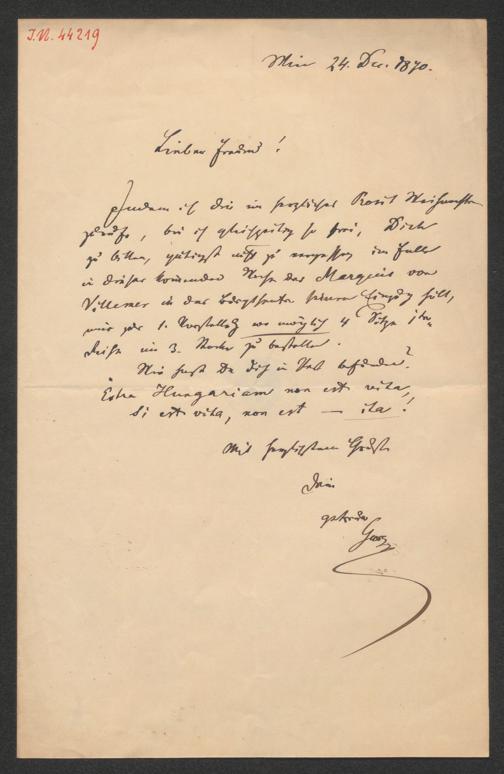 I.N. 44219
Wien 24. Dec. 1870.
Lieber Freund!
Indem ich dir ein herzliches Prosit Weihnachten
zurufe, bin ich gleichzeitig so frei, Dich
zu bitten, gütigst nicht zu vergessen im Falle
in dieser kommenden Woche der Marquis von
Villemer in der Burgtheater seinen Einzug hält,
mir zur 1. Vorstellg wo möglich 4 Sitze
Reihe im 3. Stocke zu bestellen.
Wie hast Du dich in befunden?
Extra Hungariam non est vita,
Si est vita, non est — ita!
Mit herzlichstem Gruße
Dein
getreuer
Georg